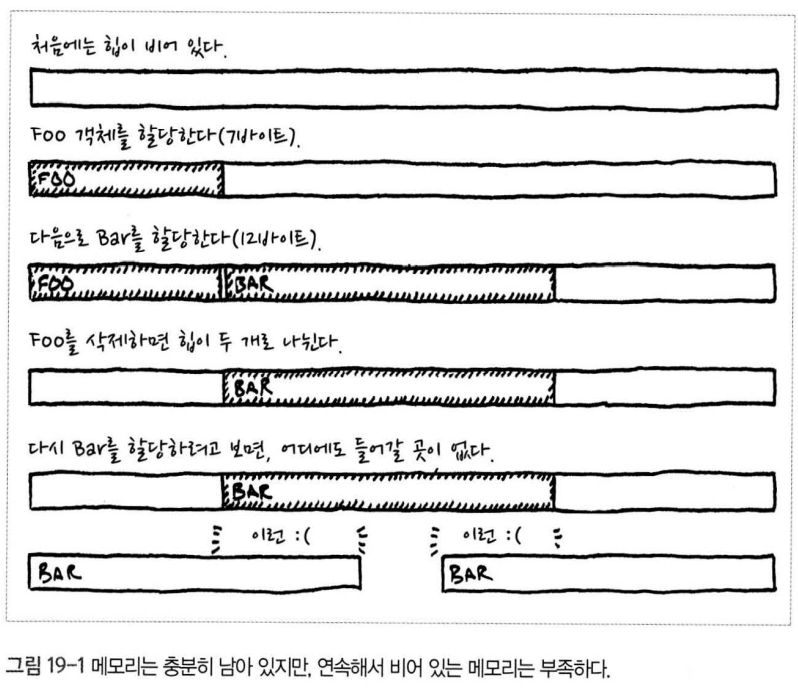 처음에는 힙이 비어 있다.
Foo 객체를 할당한다(7바이트).
FOO
다음으로 Bar를 할당한다(12바이트).
FOO BAR
Foo를 삭제하면 힙이 두 개로 나뉜다.
BAR
다시 Bar를 할당하려고 보면, 어디에도 들어갈 곳이 없다.
BAR
이런 :( 이런 :(
BAR BAR
그림 19-1 메모리는 충분히 남아 있지만, 연속해서 비어 있는 메모리는 부족하다.